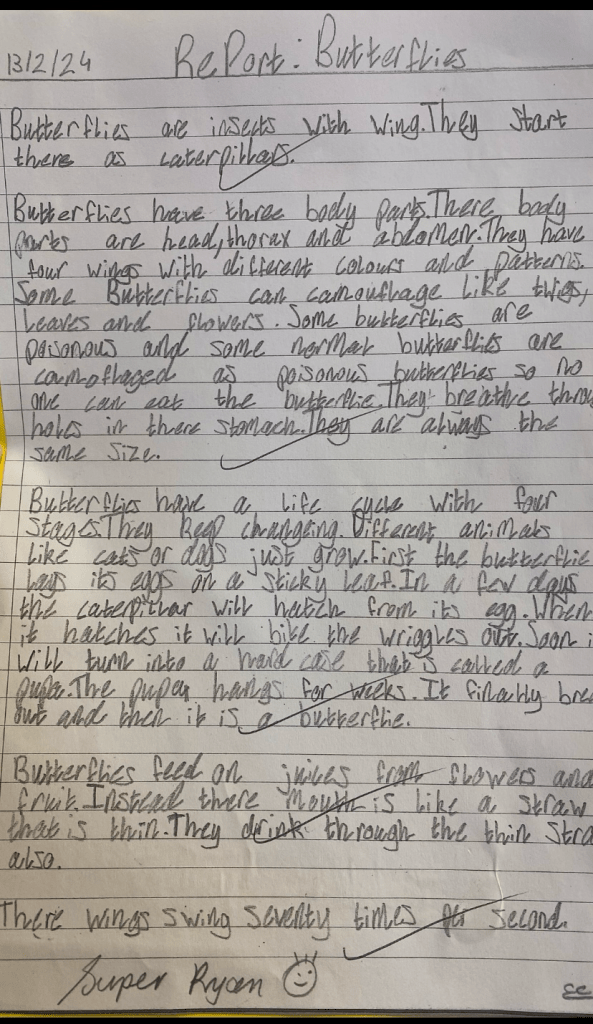 13/2/24 RePort: Butterflies
Butterflies are insects with wing.They start
there as caterpillars.
Butterflies have three body parts.There body
parts are head,thorax and abdomen.They have
four wings with different colours and patterns.
Some Butterflies can camouflage like twigs,
leaves and flowers. Some butterflies are
poisonous and some normal butterflies are
camoflaged as poisonous butterflies so no
one can eat the butterflie.They breathe throu
holes in there stomach.They are always the
same size.
Butterflies have a life cycle with four
stages.They keep changeing. Different animals
like cats or dogs just grow.First the butterflie
lays its eggs on a sticky leaf.In a few days
the caterpillar will hatch from its egg.When
it hatches it will bite the wriggles out.Soon i
will turn into a hard case that is called a
pupa.The pupa hangs for weeks. It finally bre
out and then it is a butterflie.
Butterflies feed on juices from flowers and
fruit.Instead there mouth is like a straw
that is thin.They drink through the thin stra
also.
There wings swing seventy times per second.
Super Ryan